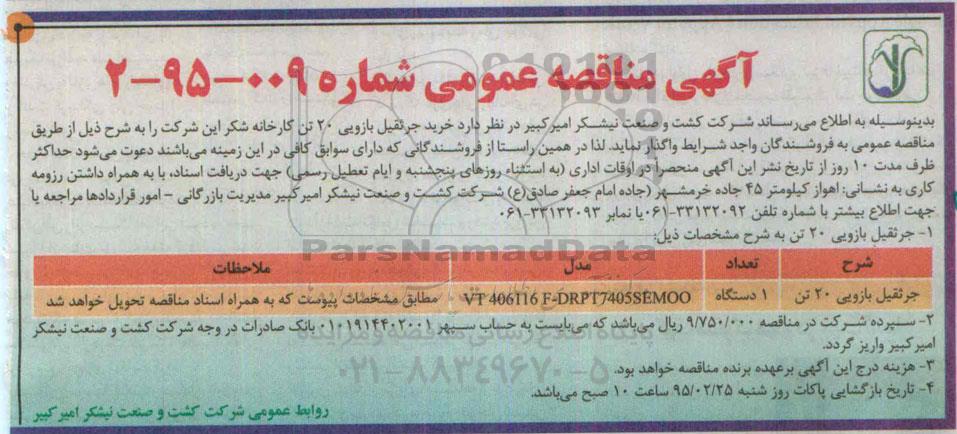 آگهی مناقصه عمومی شماره ۰۰۹-۹۵-۲
بدینوسیله به اطلاع می‌رساند شرکت کشت و صنعت نیشکر امیرکبیر در نظر دارد خرید جرثقیل بازویی ۲۰ تن کارخانه شکر این شرکت را به شرح ذیل از طریق
مناقصه عمومی به فروشندگان واجد شرایط واگذار نماید. لذا در همین راستا از فروشندگانی که دارای سوابق کافی در این زمینه می‌باشند دعوت می‌شود حداکثر
ظرف مدت ۱۰ روز از تاریخ نشر این آگهی منحصراً در اوقات اداری (به استثناء روزهای پنجشنبه و ایام تعطیل رسمی) جهت دریافت اسناد، با به همراه داشتن رزومه
کاری به نشانی: اهواز کیلومتر ۴۵ جاده خرمشهر (جاده امام جعفر صادق(ع) شرکت کشت و صنعت نیشکر امیرکبیر مدیریت بازرگانی - امور قراردادها مراجعه یا
جهت اطلاع بیشتر با شماره تلفن ۳۳۱۳۲۰۹۲-۰۶۱ یا نمابر ۳۳۱۳۲۰۹۳-۰۶۱
۱- جرثقیل بازویی ۲۰ تن به شرح مشخصات ذیل:
شرح تعداد مدل ملاحظات
جرثقیل بازویی ۲۰ تن ۱ دستگاه VT 406116 F-DRPT7405SEMOO مطابق مشخصات پیوست که به همراه اسناد مناقصه تحویل خواهد شد
۲- سپرده شرکت در مناقصه ۹/۷۵۰/۰۰۰ ریال می‌باشد که می‌بایست به حساب سپهر ۰۱۰۱۹۱۴۴۰۲۰۰۱ بانک صادرات در وجه شرکت کشت و صنعت نیشکر
امیرکبیر واریز گردد.
۳- هزینه درج این آگهی برعهده برنده مناقصه خواهد بود.
۴- تاریخ بازگشایی پاکات روز شنبه ۹۵/۰۲/۲۵ ساعت ۱۰ صبح می‌باشد.
روابط عمومی شرکت کشت و صنعت نیشکر امیرکبیر
ParsNamadData
پایگاه اطلاع رسانی مناقصه و مزایده
۰۲۱-۸۸۳۴۹۶۷۰-۵